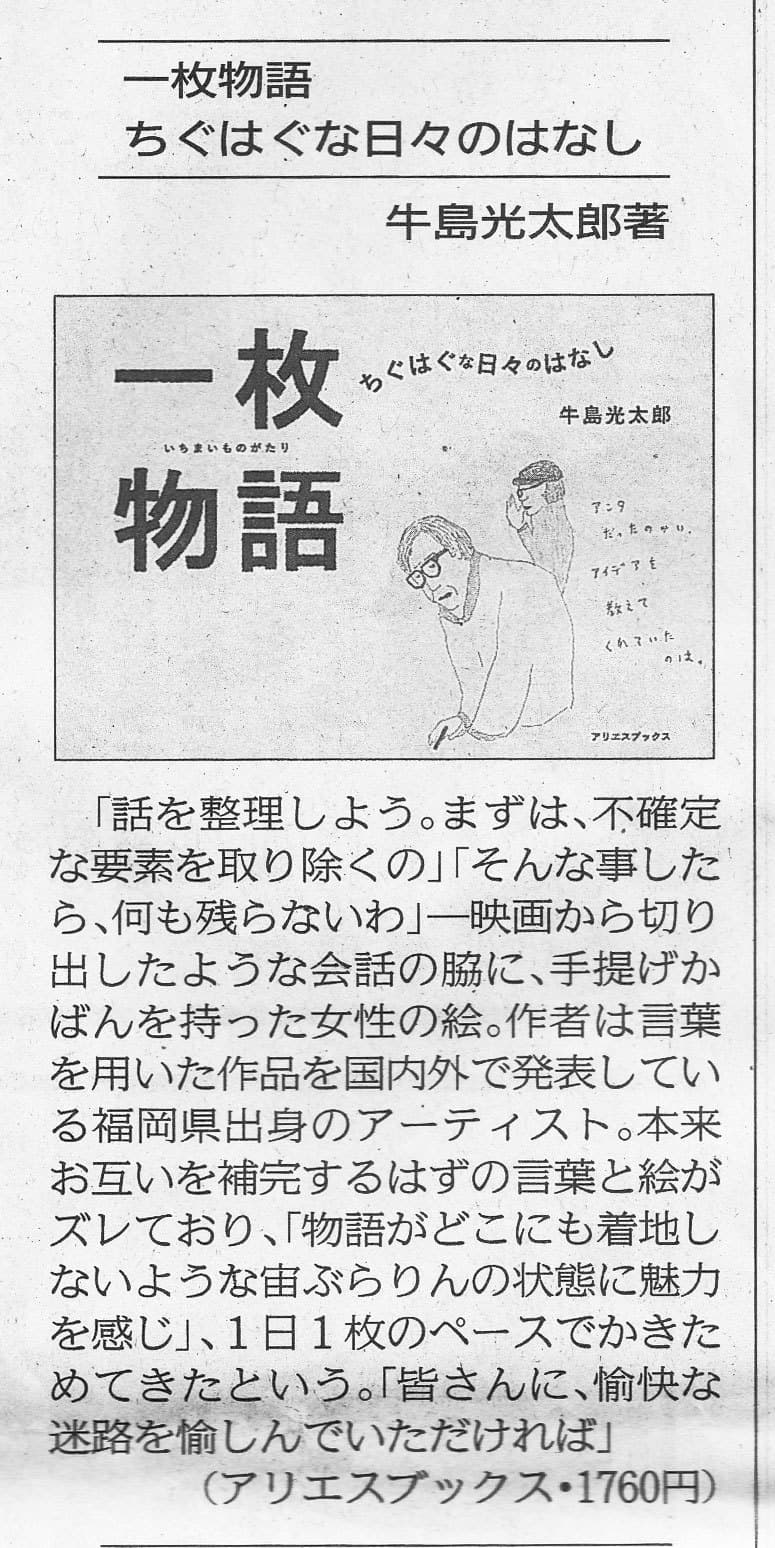 一枚物語
ちぐはぐな日々のはなし
牛島光太郎著
一枚
いちまいものがたり
物語
ちぐはぐな日々のはなし
牛島光太郎
アンタ
だったのかい、
アイデアを
教えて
くれていた
のは。
アリエスブックス
「話を整理しよう。まずは、不確定
な要素を取り除くの」「そんな事した
ら、何も残らないわ」―映画から切り
出したような会話の脇に、手提げか
ばんを持った女性の絵。作者は言葉
を用いた作品を国内外で発表してい
る福岡県出身のアーティスト。本来
お互いを補完するはずの言葉と絵が
ズレており、「物語がどこにも着地し
ないような宙ぶらりんの状態に魅力
を感じ」、1日1枚のペースでかきた
めてきたという。「皆さんに、愉快な
迷路を愉しんでいただければ」
(アリエスブックス・1760円)